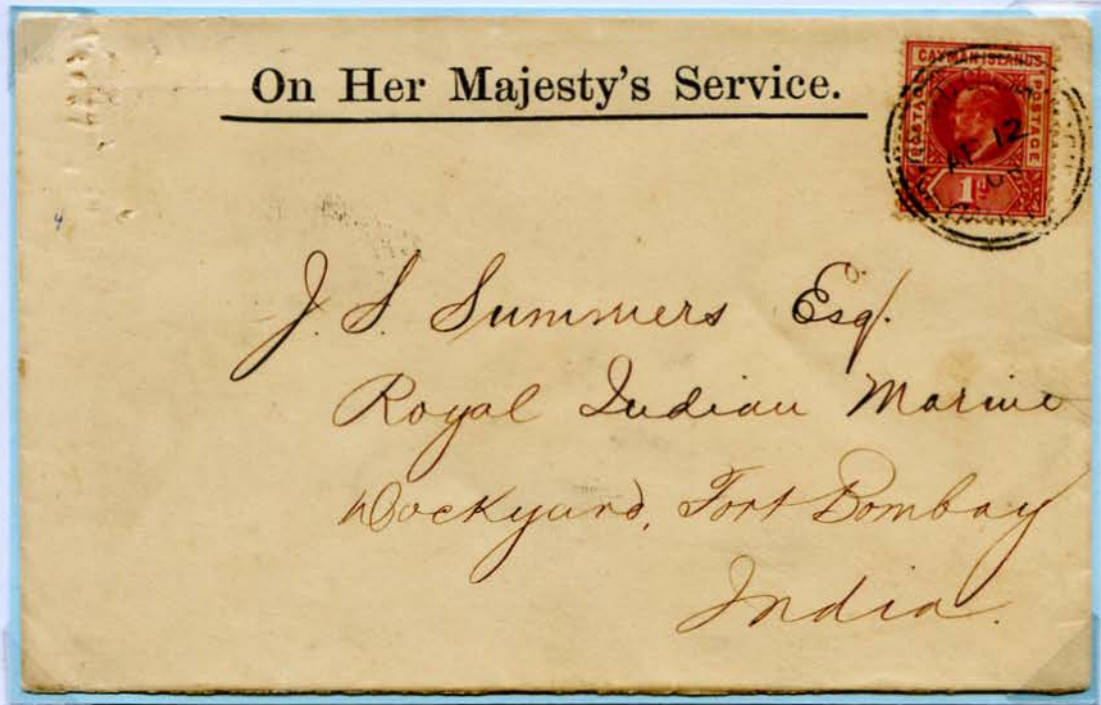 On Her Majesty's Service.
CAYMAN ISLANDS
POSTAGE
POSTAGE
1d
AP 12
J. S. Summers Esq.
Royal Indian Marine
Dockyard, Fort Bombay
India.